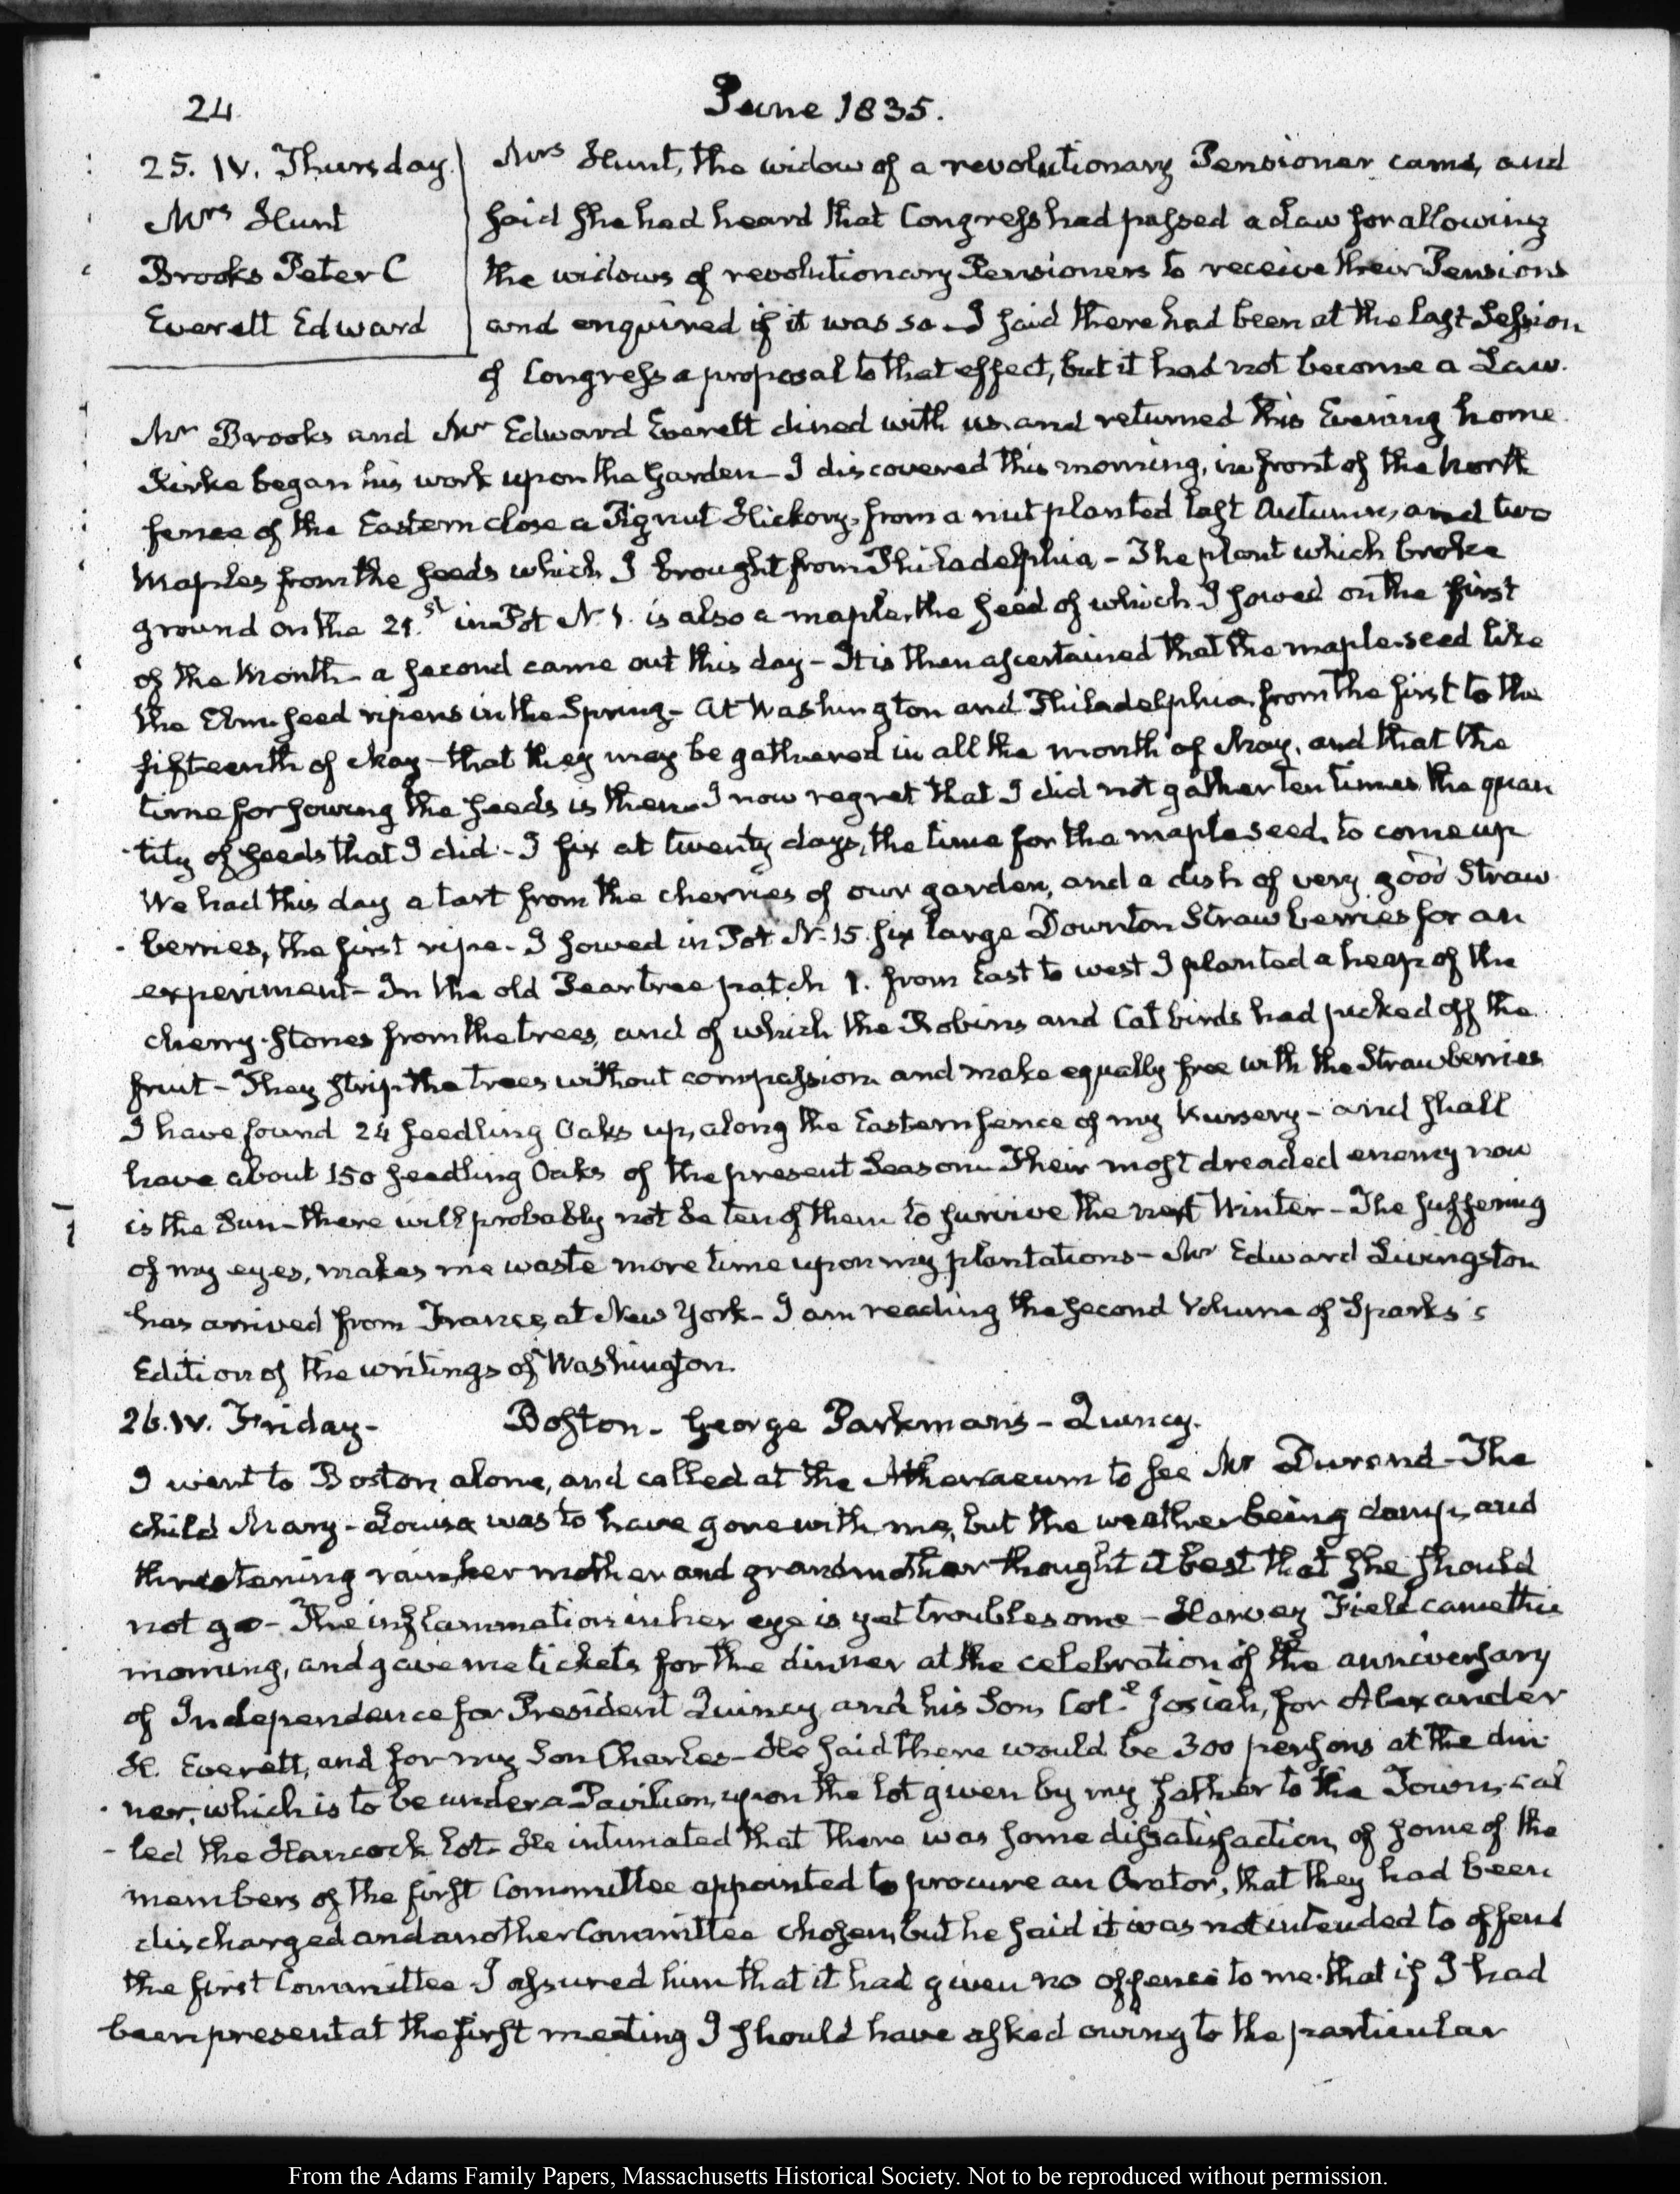 24
June 1835.
25. IV. Thursday.
Mrs Hunt
Brooks Peter C
Everett Edward
Mrs Hunt, the widow of a revolutionary Pensioner came, and
said she had heard that Congress had passed a Law for allowing
the widows of revolutionary Pensioners to receive their Pensions
and enquired if it was so. I said there had been at the last Session
of Congress a proposal to that effect, but it had not become a Law.
Mr Brooks and Mr Edward Everett dined with us and returned this Evening home.
Kirke began his work upon the Garden - I discovered this morning, in front of the North
fence of the Eastern close a Pignut Hickory, from a nut planted last Autumn, and two
Maples from the seeds which I brought from Philadelphia - The plant which broke
ground on the 21.st in Pot N. 1. is also a maple, the seed of which I sowed on the first
of the Month - a second came out this day - It is then ascertained that the maple-seed like
the Elm-seed ripens in the Spring - At Washington and Philadelphia from the first to the
fifteenth of May - that they may be gathered in all the month of May, and that the
time for sowing the seeds is then. I now regret that I did not gather ten times the quan
-tity of seeds that I did - I fix at twenty days, the time for the maple seed to come up
We had this day a tart from the cherries of our garden, and a dish of very good Straw
-berries, the first ripe - I sowed in Pot N. 15. six large Downton Strawberries for an
experiment - In the old Peartree patch 1. from East to west I planted a heap of the
cherry-stones from the trees, and of which the Robins and Cat birds had picked off the
fruit - They strip the trees without compassion and make equally free with the Strawberries
I have found 24 seedling Oaks up, along the Eastern fence of my Nursery - and shall
have about 150 seedling Oaks of the present Season - Their most dreaded enemy now
is the Sun - there will probably not be ten of them to survive the next Winter - The suffering
of my eyes, makes me waste more time upon my plantations - Mr Edward Livingston
has arrived from France, at New York - I am reading the second Volume of Sparks's
Edition of the writings of Washington.
26. IV. Friday -
Boston - George Parkman's - Quincy.
I went to Boston alone, and called at the Athenaeum to see Mr Durand - The
child Mary-Louisa was to have gone with me, but the weather being damp, and
threatening rain, her mother and grandmother thought it best that she should
not go - The inflammation in her eye is yet troublesome - Harvey Field came this
morning, and gave me tickets for the dinner at the celebration of the anniversary
of Independence for President Quincy and his Son, Col.l Josiah, for Alexander
H. Everett, and for my Son Charles - He said there would be 300 persons at the din
-ner, which is to be under a Pavilion, upon the lot given by my father to the Town, cal
-led the Hancock lot - He intimated that there was some dissatisfaction of some of the
members of the first Committee appointed to procure an Orator, that they had been
discharged and another Committee chosen, but he said it was not intended to offend
the first Committee. I assured him that it had given no offence to me. that if I had
been present at the first meeting I should have asked owing to the particular
From the Adams Family Papers, Massachusetts Historical Society. Not to be reproduced without permission.